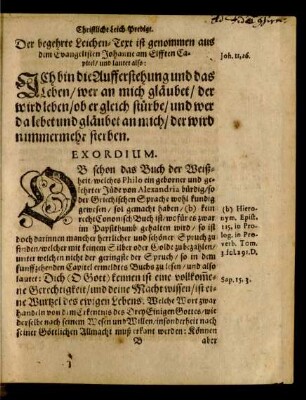 Christliche Leich-Predigt.
Der begehrte Leichen-Text ist genommen aus
dem Evangelisten Johanne am Eilfften Ca-
pitel / und lautet also:
Joh. 11, 26.
ICh bin die Aufferstehung und das
Leben / wer an mich gläubet / der
wird leben / ob er gleich stürbe / und wer
da lebet und gläubet an mich / der wird
nimmermehr sterben.
EXORDIUM.
OB schon das Buch der Weiß-
heit / welches Philo ein geborner und ge-
lehrter Jüde von Alexandria bürdig / so
der Griechischen Sprache wohl kundig
gewesen / sol gemacht haben / (b) kein
recht Canonisch Buch ist / wofür es zwar
im Papstthumb gehalten wird / so ist
doch darinnen mancher herrlicher und schöner Spruch zu
finden / welcher mit keinem Silber oder Golde zubezahlen /
unter welchen nicht der geringste der Spruch / so in dem
funffzehenden Capitel ermeltes Buchs zu lesen / und also
lautet: Dich (O Gott) kennen ist eine vollkom̃e-
ne Gerechtigkeit / und deine Macht wissen / ist ei-
ne Wurtzel des ewigen Lebens. Welche Wort zwar
handeln von dem Erkentnis des Drey Einigen Gottes / wie
derselbe nach seinem Wesen und Willen / insonderheit nach
seiner Göttlichen Allmacht muß erkant werden: Können
B aber
(b) Hiero-
nym. Epist.
115, in Prolog.
in Pro-
verb. Tom.
3. fol. 91. D.
Sap. 15. 3.